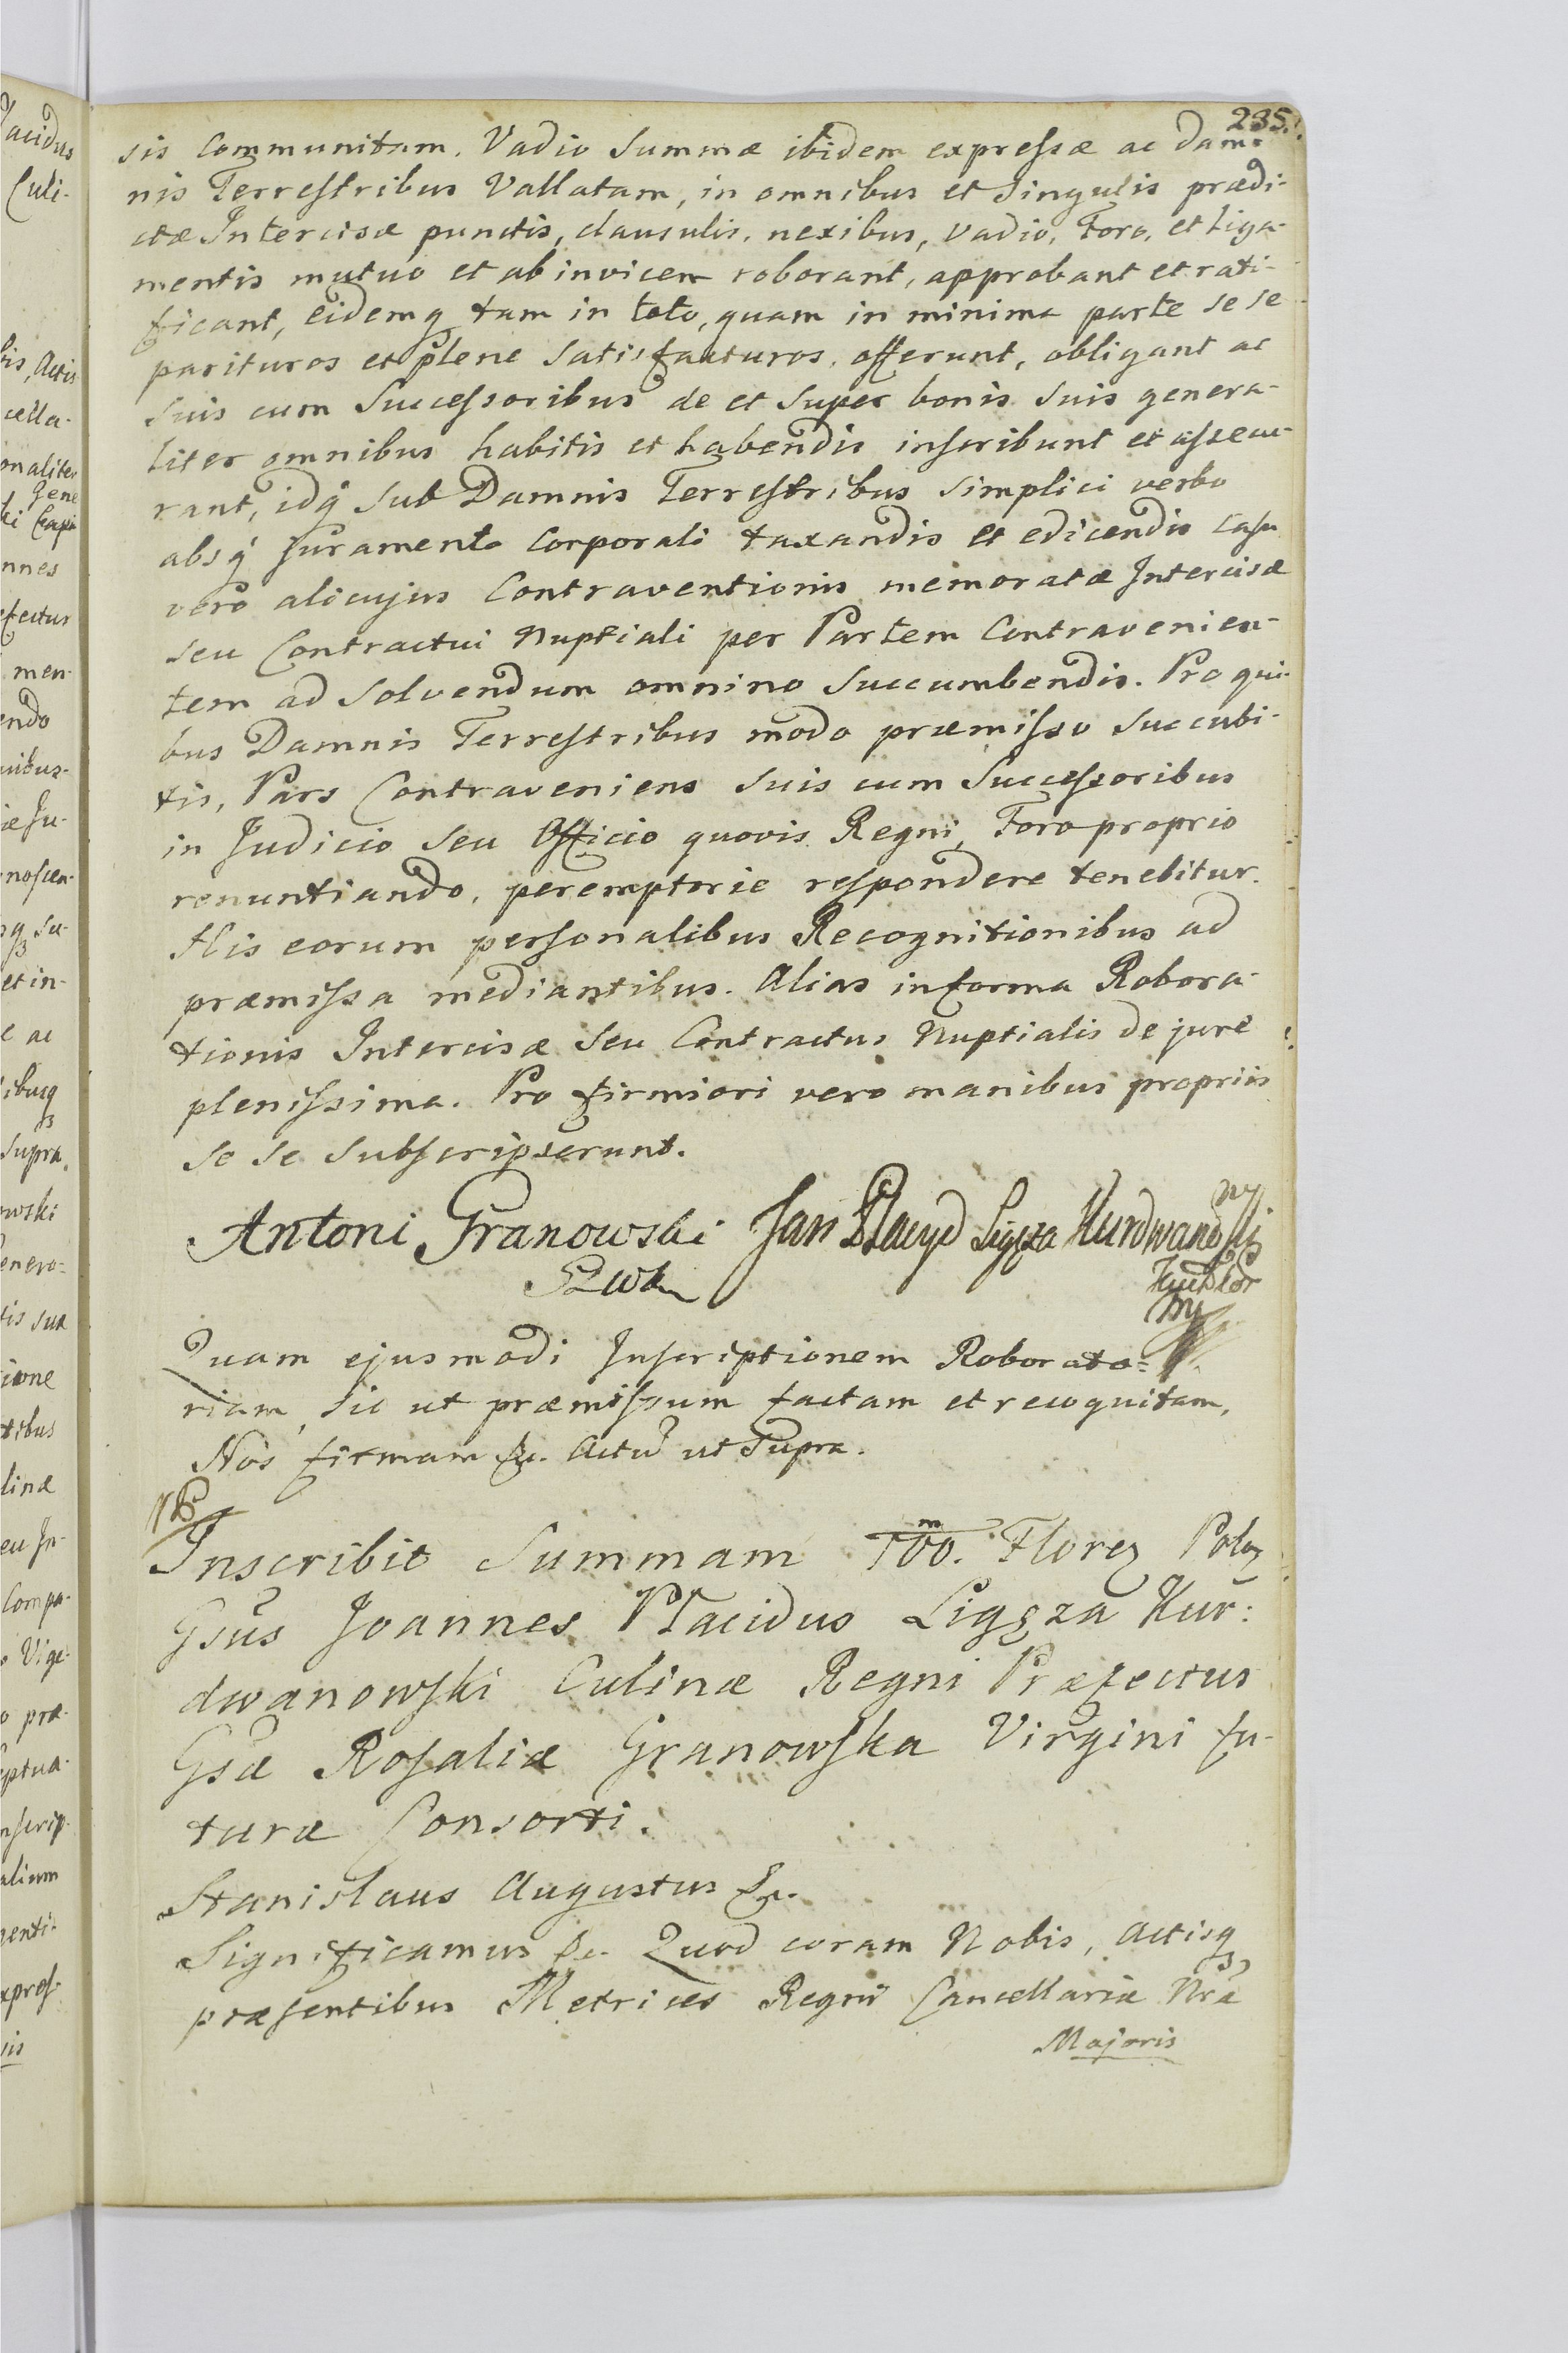 235.
sis Communitam. Vadio Summæ ibidem expressæ ac dam-
nis Terrestribus Vallatam, in omnibus et Singulis prædi-
ctæ Intercisæ punctis, clausulis, nexibus, vadio, Foro, et Liga-
mentis mutuo et ab invicem roborant, approbant et rati-
ficant, eidemq tam in toto, quam in minima parte se se
parituros et plene Satisfacturos, offerunt, obligant ac
Suis cum Successoribus de et Super bonis Suis genera-
liter omnibus habitis et habendis inscribunt et assecu-
rant, idq Sub Damnis Terrestribus Simplici verbo
absq Juramento Corporali taxandis et edicendis Casu
vero alicujus Contraventionis memoratæ Intercisæ
Seu Contractui Nuptiali per Partem Contravenien-
tem ad Solvendum omnino Succumbendis. Pro qui-
bus Damnis Terrestribus modo præmisso Succubi-
tis, Pars Contraveniens Suis cum Successoribus
in Judicio Seu Officio quovis Regni, Foro proprio
renuntiando, peremptorie respondere tenebitur.
His eorum personalibus Recognitionibus ad
præmissa mediantibus. Alias in forma Robora-
tionis Intercisæ Seu Contractus Nuptialis de jure
plenissima. Pro firmiori vero manibus propriis
Se Se Subscripserunt.
Antoni Granowski Jan Placyd Ligęza Kurdwanowski
Quam ejusmodi Inscriptionem Roborato=
riam, Sic ut præmissum factam et recognitam,
Nos firmam &. Actu ut Supra.
NB
Inscribit Summam 100. m Floreņ Poloņ
Gsus Joannes Placidus Ligęza Kur:
dwanowski Culinæ Regni Præfectus
Gsæ Rosaliæ Granowska Virgini fu-
turæ Consorti.
Stanislaus Augustus &.
Significamus &. Quod coram Nobis, Actisq
præsentibus Metrices Regni Cancellariæ Nræ
Majoris